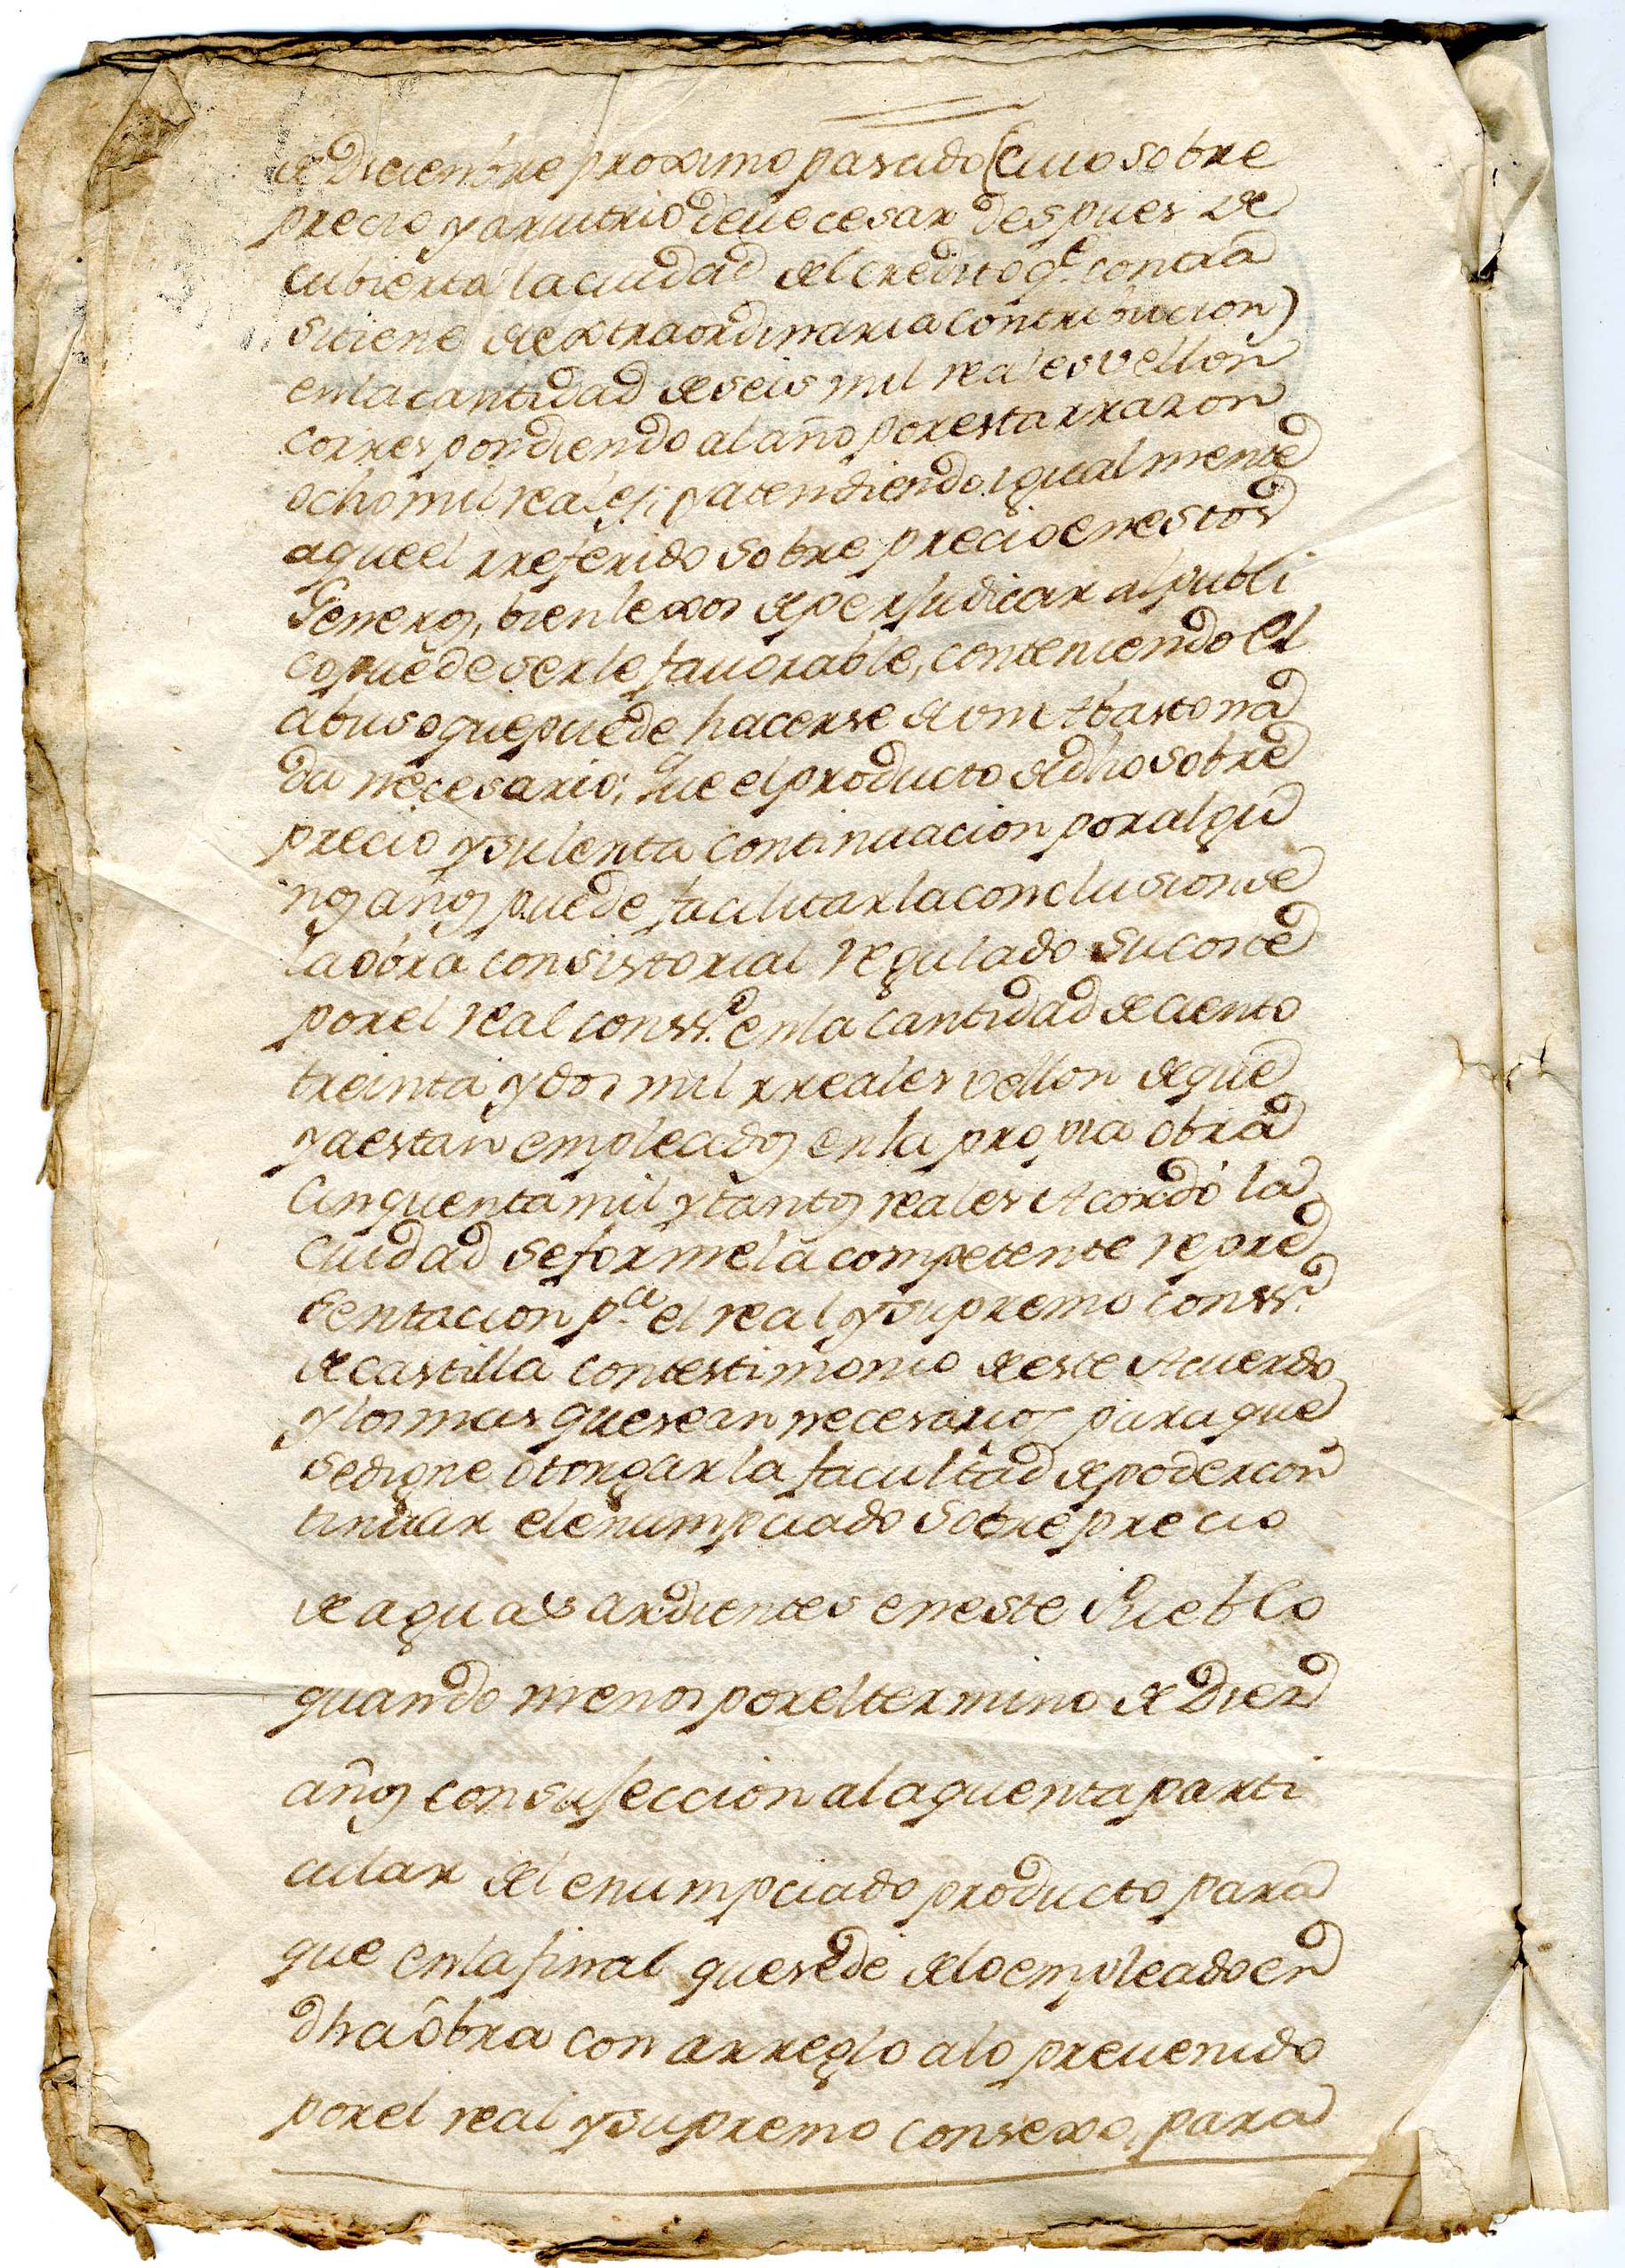 de Diciembre proximo pasado (cuio sobre
precio y aruitrio deue cesar despues de
cubierta la ciudad del credito q.e contra
si tiene de extraordinaria contribucion)
en la cantidad de seis mil reales vellon
correspondiendo al año por esta rrazon
ocho mil reales; y atendiendo igualmente
a que el rreferido sobre precio en estos
Generos, bien lexos de perjudicar al publi
co puede serle fauorable, conteniendo el
abuso que puede hacerse de un Abasto na
da necesario; Que el producto de dho sobre
precio y su lenta continuacion por algu
nos años puede facilitar la conclusion de
la obra consistorial regulado su coste
por el real conss.o en la cantidad de ciento
treinta y dos mil rreales vellon de que
ya estan empleados en la propia obra
Cinquenta mil y tantos reales Acordó la
Ciudad se forme la competente repre
sentacion p.a el real y supremo conss.o
de castilla con testimonio de este Acuerdo
y los mas que sean necesarios para que
se digne otorgar la facultad de poder con
tinuar el enumpciado sobre precio
de aguas ardientes en este Pueblo
quando menos por el termino de Diez
años con sujeccion a la quenta parti
cular del enumpciado producto para
que en la final que se dé de lo empleado en
dha óbra con arreglo a lo preuenido
por el real y supremo consexo, para